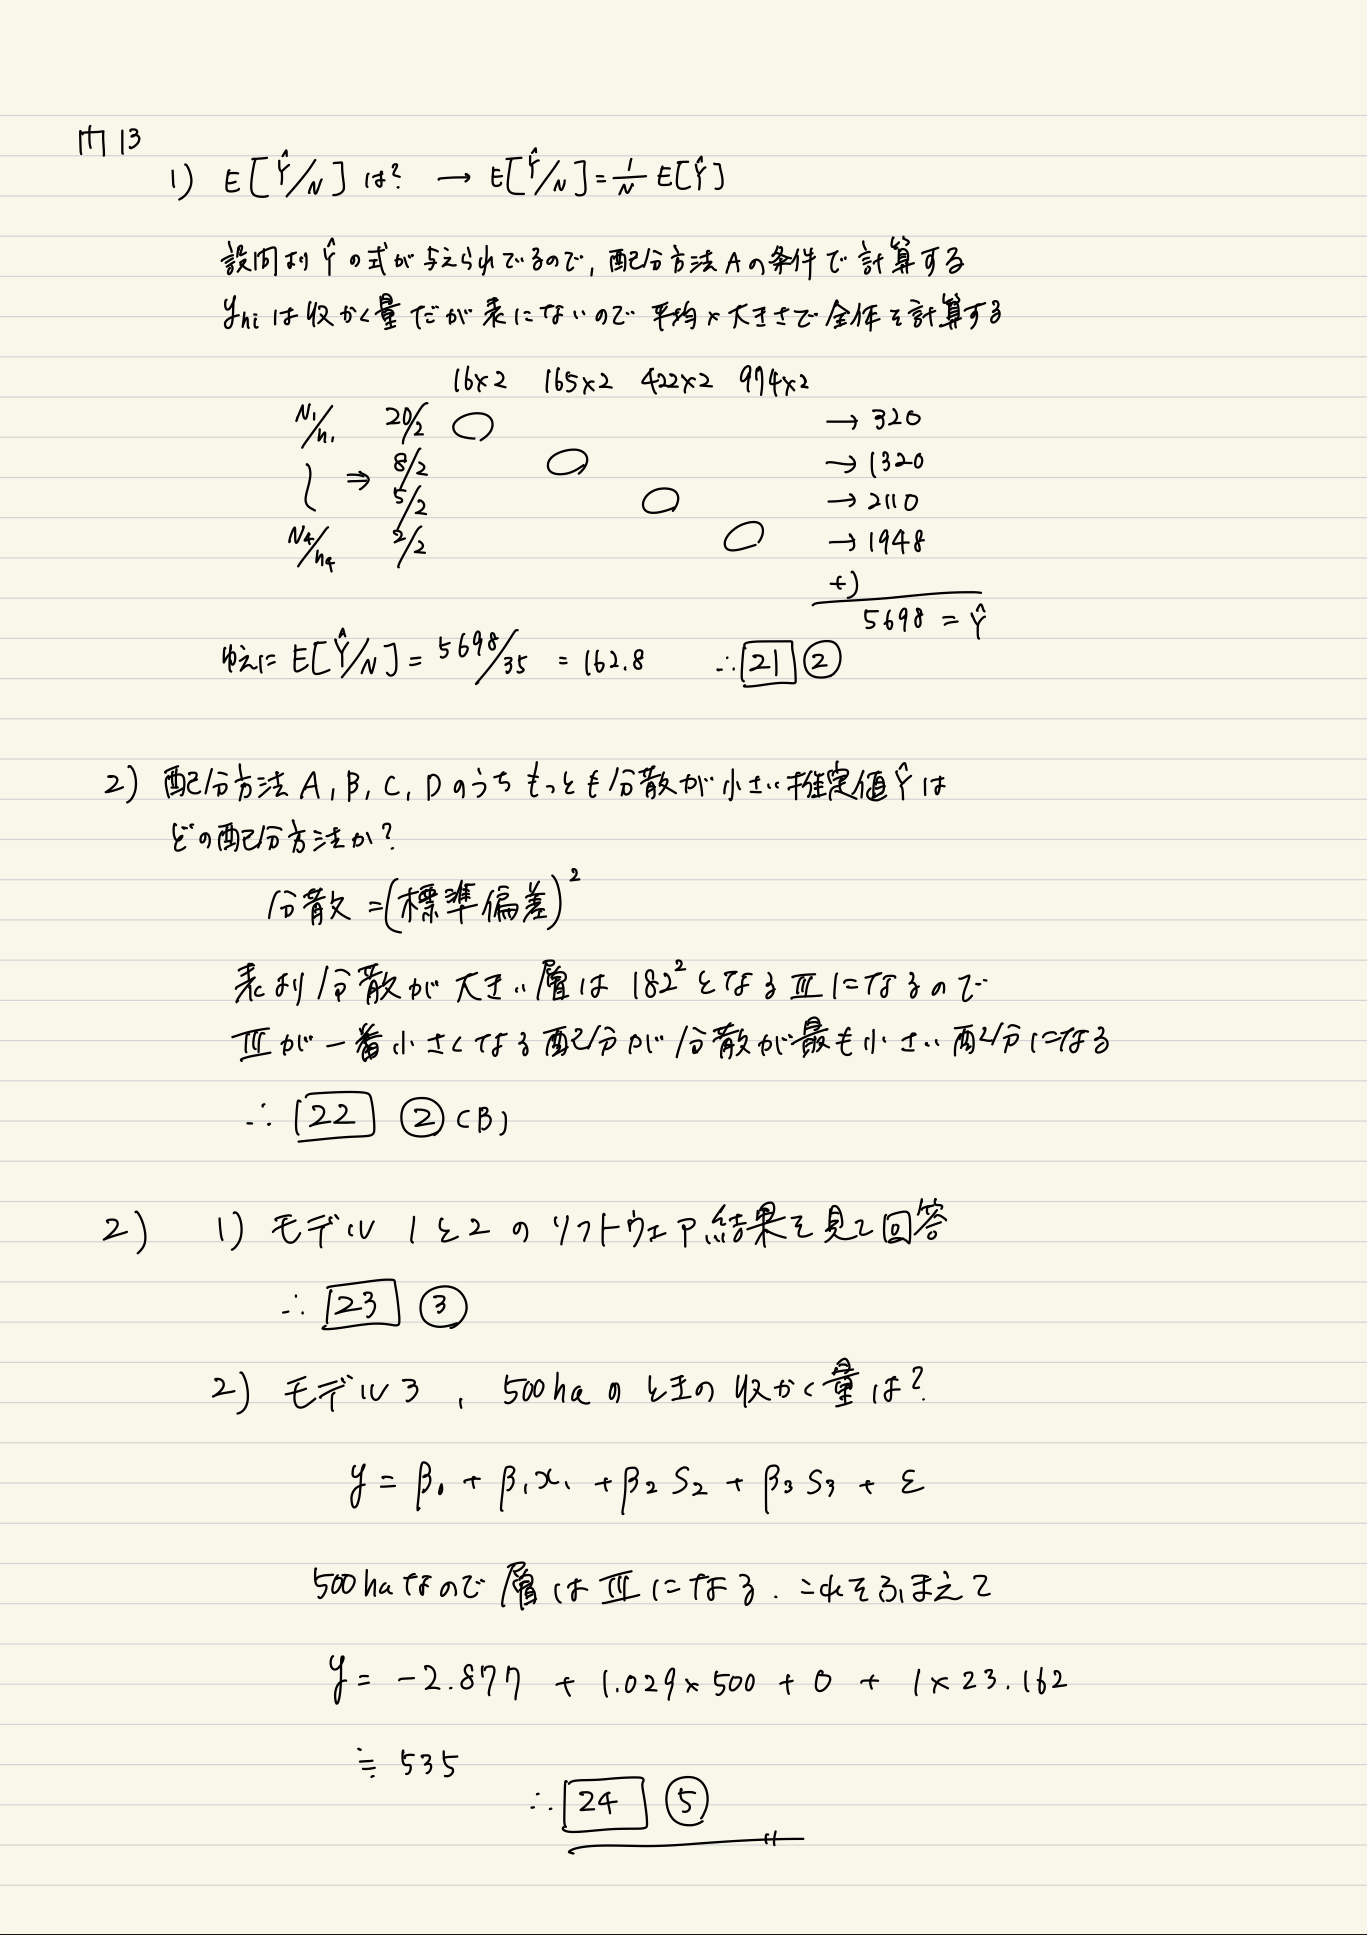 問13
1) E[Ŷ/N]は? → E[Ŷ/N]=1/N E[Ŷ]
設問よりŶの式が与えられているので,配分方法Aの条件で計算する
yhiは収かく量だが表にないので平均×大きさで全体を計算する
16×2 165×2 422×2 974×2
N1/n1 20/2 ○ → 320
⇒ 8/2 ○ → 1320
5/2 ○ → 2110
N4/n4 2/2 ○ → 1948
+)
5698 = Ŷ
ゆえに E[Ŷ/N] = 5698/35 = 162.8 ∴ 21 ②
2) 配分方法A,B,C,Dのうちもっとも分散が小さい推定値Ŷは
どの配分方法か?
分散=(標準偏差)²
表より分散が大きい層は182²となるⅢになるので
Ⅲが一番小さくなる配分が分散が最も小さい配分になる
∴ 22 ② (B)
2) 1) モデル1と2のソフトウェア結果を見て回答
∴ 23 ③
2) モデル3, 500haのときの収かく量は?
y = β0 + β1x1 + β2S2 + β3S3 + ε
500haなので層はⅢになる. これをふまえて
y = -2.877 + 1.029×500 + 0 + 1×23.162
≒ 535
∴ 24 ⑤